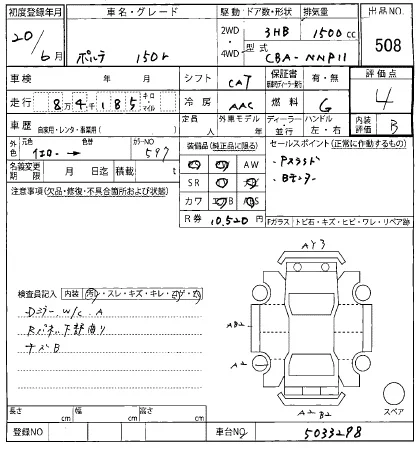 初度登録年月 車名・グレード 駆動 ドア数・形状 排気量 出品NO.
20/6月 ポルテ 150r 2WD 4WD 3HB 1500cc 508
型式 CBA-NNP11
車検 年 月 シフト CAT 保証書 有・無 評価点
走行 8万4千185 キロ・マイル 冷房 AAC 燃料 G 4
車歴 自家用・レンタ・事業用( ) 定員 人 外車モデル 年 ディーラー・並行 ハンドル 左・右 内装評価 B
外色 元色 イエロー → 色替 カラーNO 597
装備品(純正品に限る) セールスポイント(正常に作動するもの)
名義変更期限 月 日迄 積載 t
AW
SR
カワ エアB ABS
R券 10,520円
・Pスライド
注意事項(欠品・修復・不具合箇所および状態)
Fガラス トビ石・キズ・ヒビ・ワレ・リペア跡
AY3
AB2
A2
A2 B2
スペア
検査員記入 内装 汚・スレ・キズ・キレ
Dミラー W/C A
Rパネル下部曲り
キズB
長さ cm 幅 cm 高さ cm
登録NO 車台NO 5033298